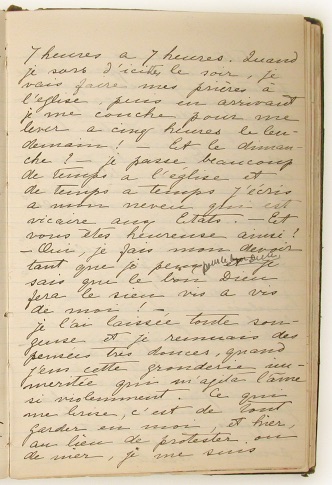 7 heures a 7 heures. Quand
je sors d'ici le soir, je
vais faire mes prières à
l'église, puis en arrivant
je me couche pour me
lever a cinq heures le len-
demain! — Et le diman-
che? — Je passe beaucoup
de temps a l'eglise et
de temps a temps j'écris
a mon neveu qui est
vicaire aux Etats. — Et
vous êtes heureuse ainsi?
— Oui, je fais mon devoir
tant que je peux, je
sais que le bon Dieu
fera le sien vis a vis
de moi!
Je l'ai laissée toute son-
geuse et je remuais des
pensées très douces, quand
j'eus cette gronderie im-
meritée qui m'agita l'âme
si violemment. Ce qui
me brise, c'est de tout
garder en moi, et hier,
au lieu de protester, ou
de nier, je me suis